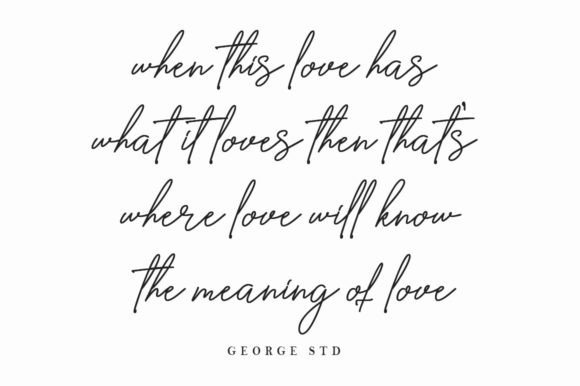 when this love has
what it loves then that's
where love will know
the meaning of love
GEORGE STD